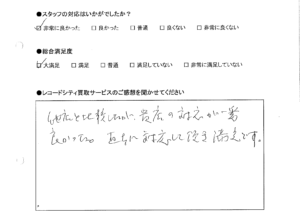 ●スタッフの対応はいかがでしたか？
☑非常に良かった □良かった □普通 □良くない □非常に良くない
●総合満足度
☑大満足 □満足 □普通 □満足していない □非常に満足していない
●レコードシティ買取サービスのご感想を聞かせてください
他店と比較したが、貴店の対応が一番
良かった。迅速に対応して頂き満足です。